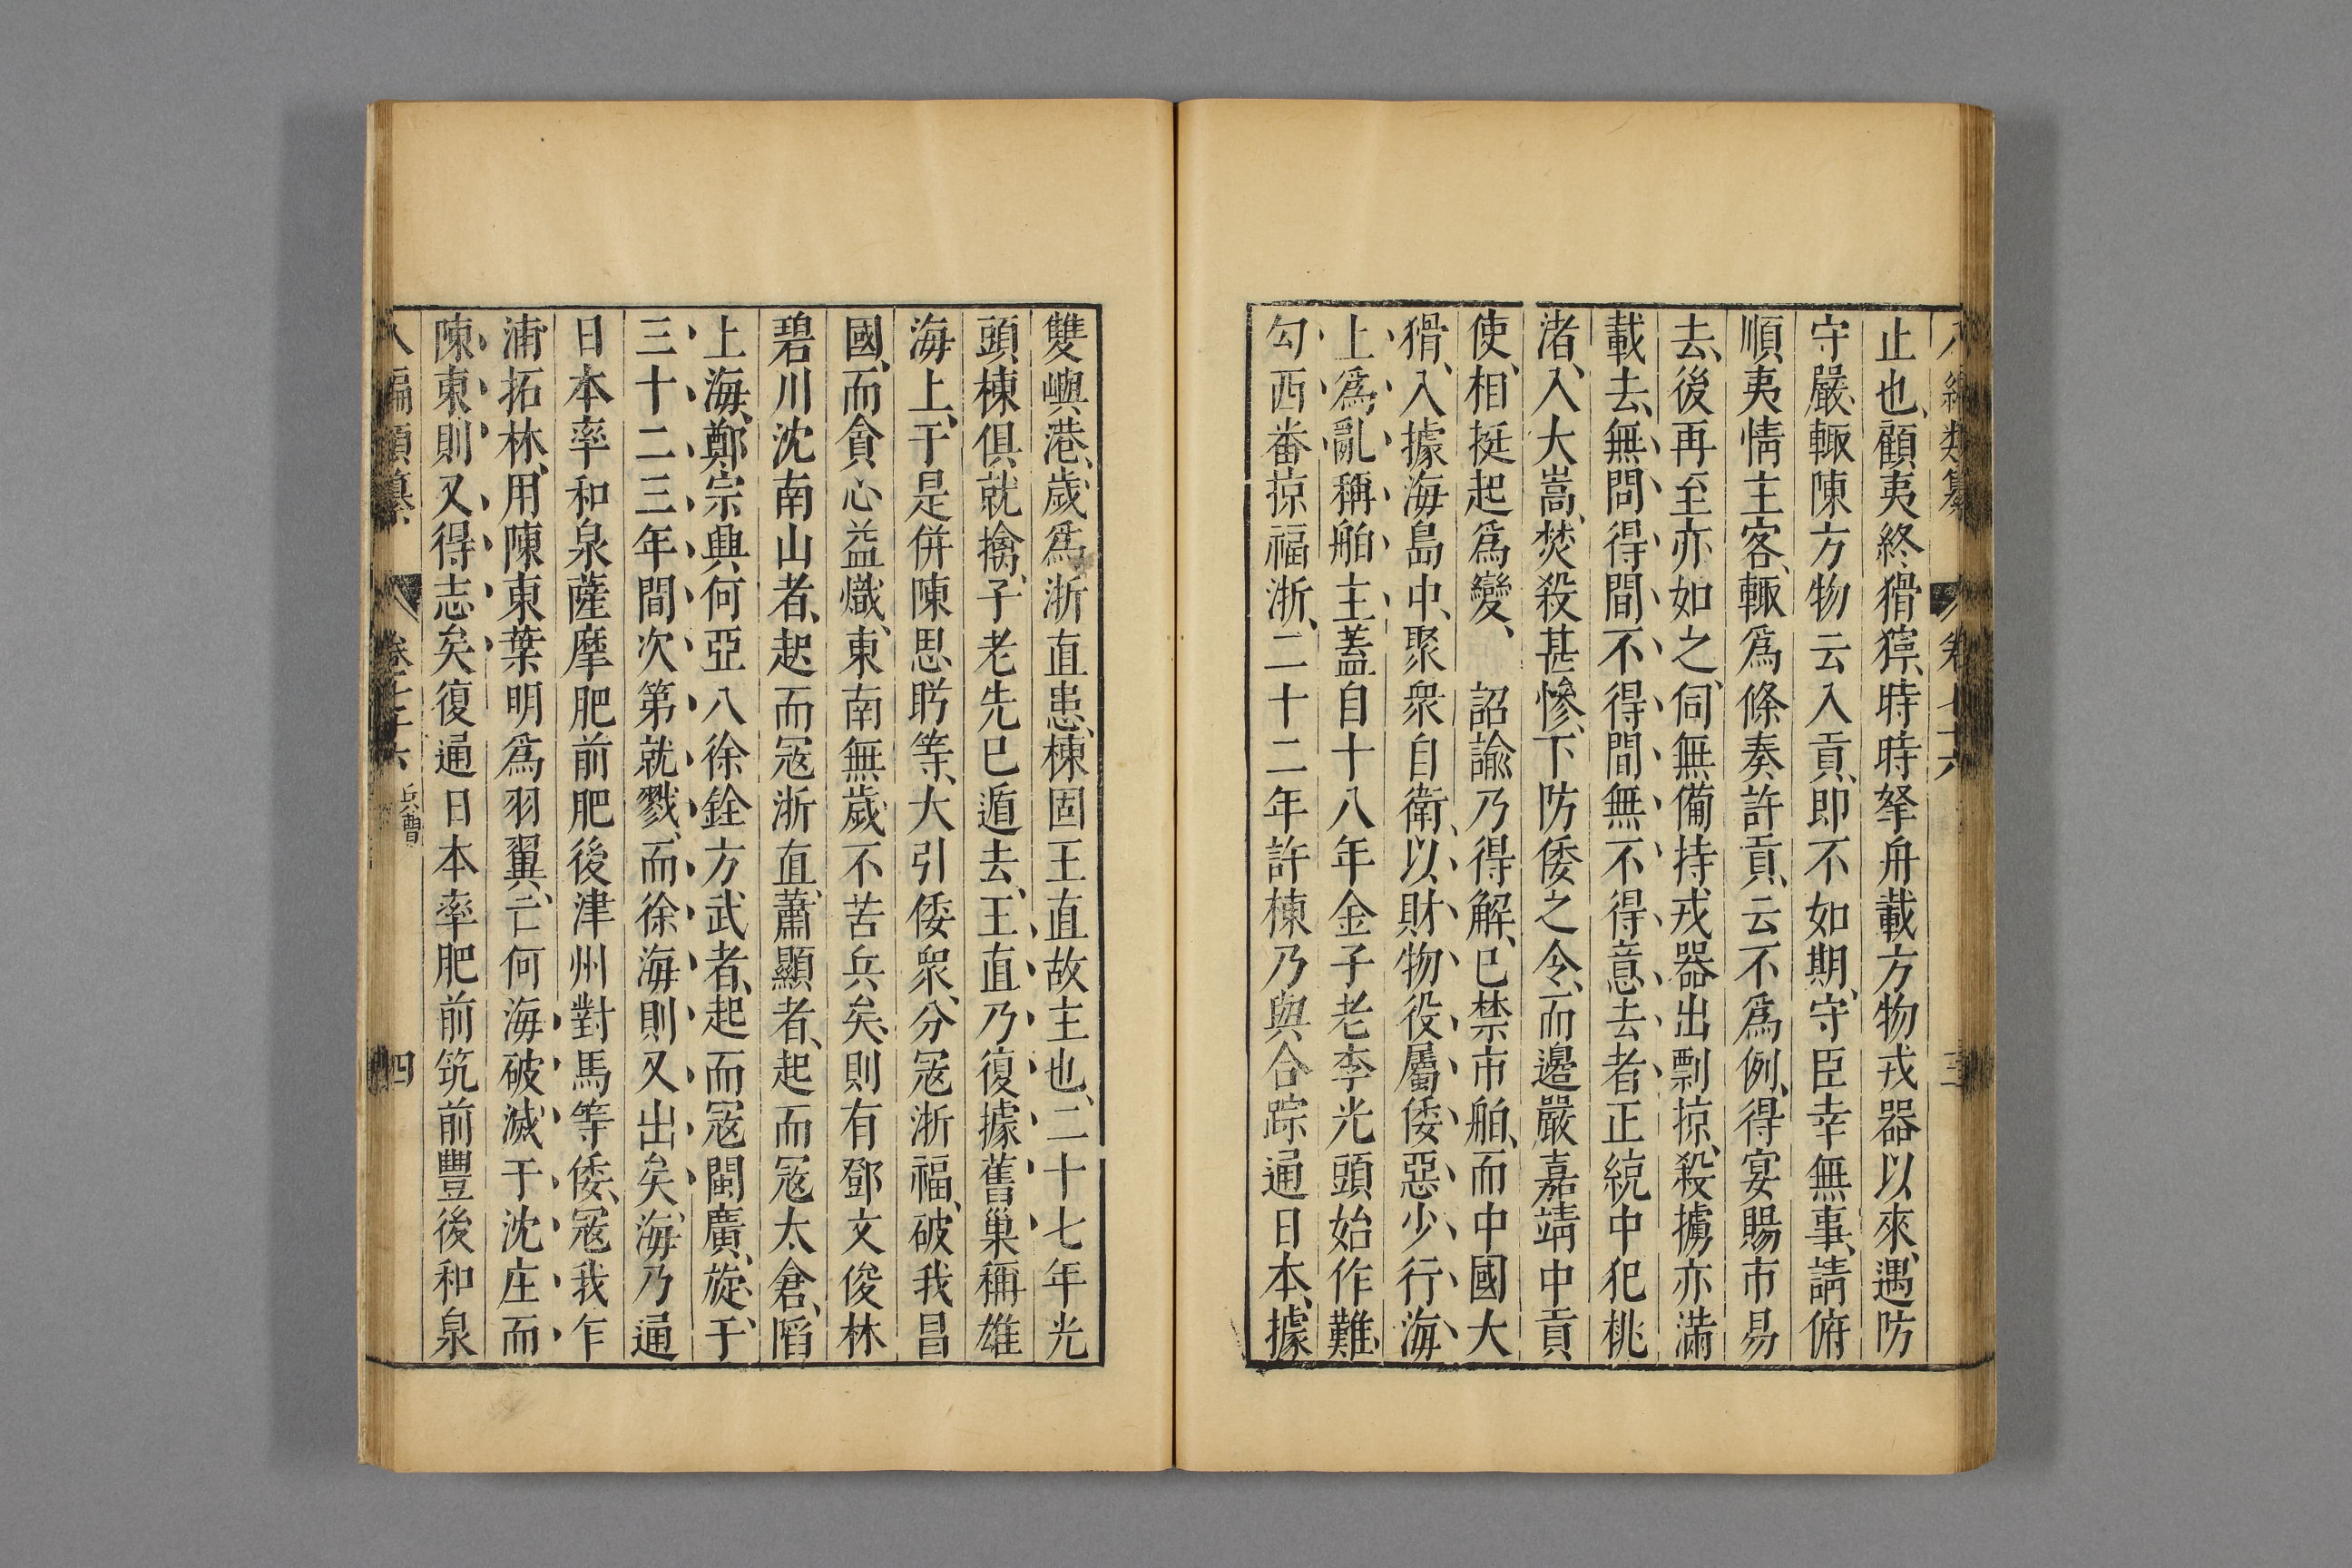 八編類纂 卷七十六 三
止也、顧夷終猾獰、時時拏舟載方物戎器以來、遇防
守嚴、輙陳方物云入貢、即不如期、守臣幸無事、請俯
順夷情主客、輙爲條奏、許貢、云不爲例、得宴賜市易
去、後再至亦如之、伺無備持戎器出剽掠、殺擄亦滿
載去、無問得間不得間無不得意去者正統中犯桃
渚、入大嵩、焚殺甚慘、下防倭之令、而邊嚴嘉靖中貢
使、相挺起爲變、詔諭乃得解、巳禁市舶、而中國大
猾、入據海島中、聚衆自衛、以財物役屬倭惡少行海
上爲亂稱舶主蓋自十八年金子老李光頭始作難、
勾西番掠福浙、二十二年許棟乃與合踪通日本、據
雙嶼港、歲爲浙直患、棟固王直故主也、二十七年光
頭棟俱就擒、子老先已遁去、王直乃復據舊巢稱雄
海上、于是併陳思盻等、大引倭衆、分冦浙福、破我昌
國、而貪心益熾、東南無歲不苦兵矣、則有鄧文俊林
碧川沈南山者、起而冦浙直、蕭顯者、起而冦太倉、䧟
上海、鄭宗興何亞八徐銓方武者、起而冦閩廣、旋、于、
三十二三年間次第就戮、而徐海則又出矣、海乃通
日本率和泉薩摩肥前肥後津州對馬等倭、冦我乍
浦拓林、用陳東葉明爲羽翼、亡何海破滅于沈庄而
陳東則又得志矣復通日本率肥前筑前豐後和泉
八編類纂 卷七十六 兵曹 四